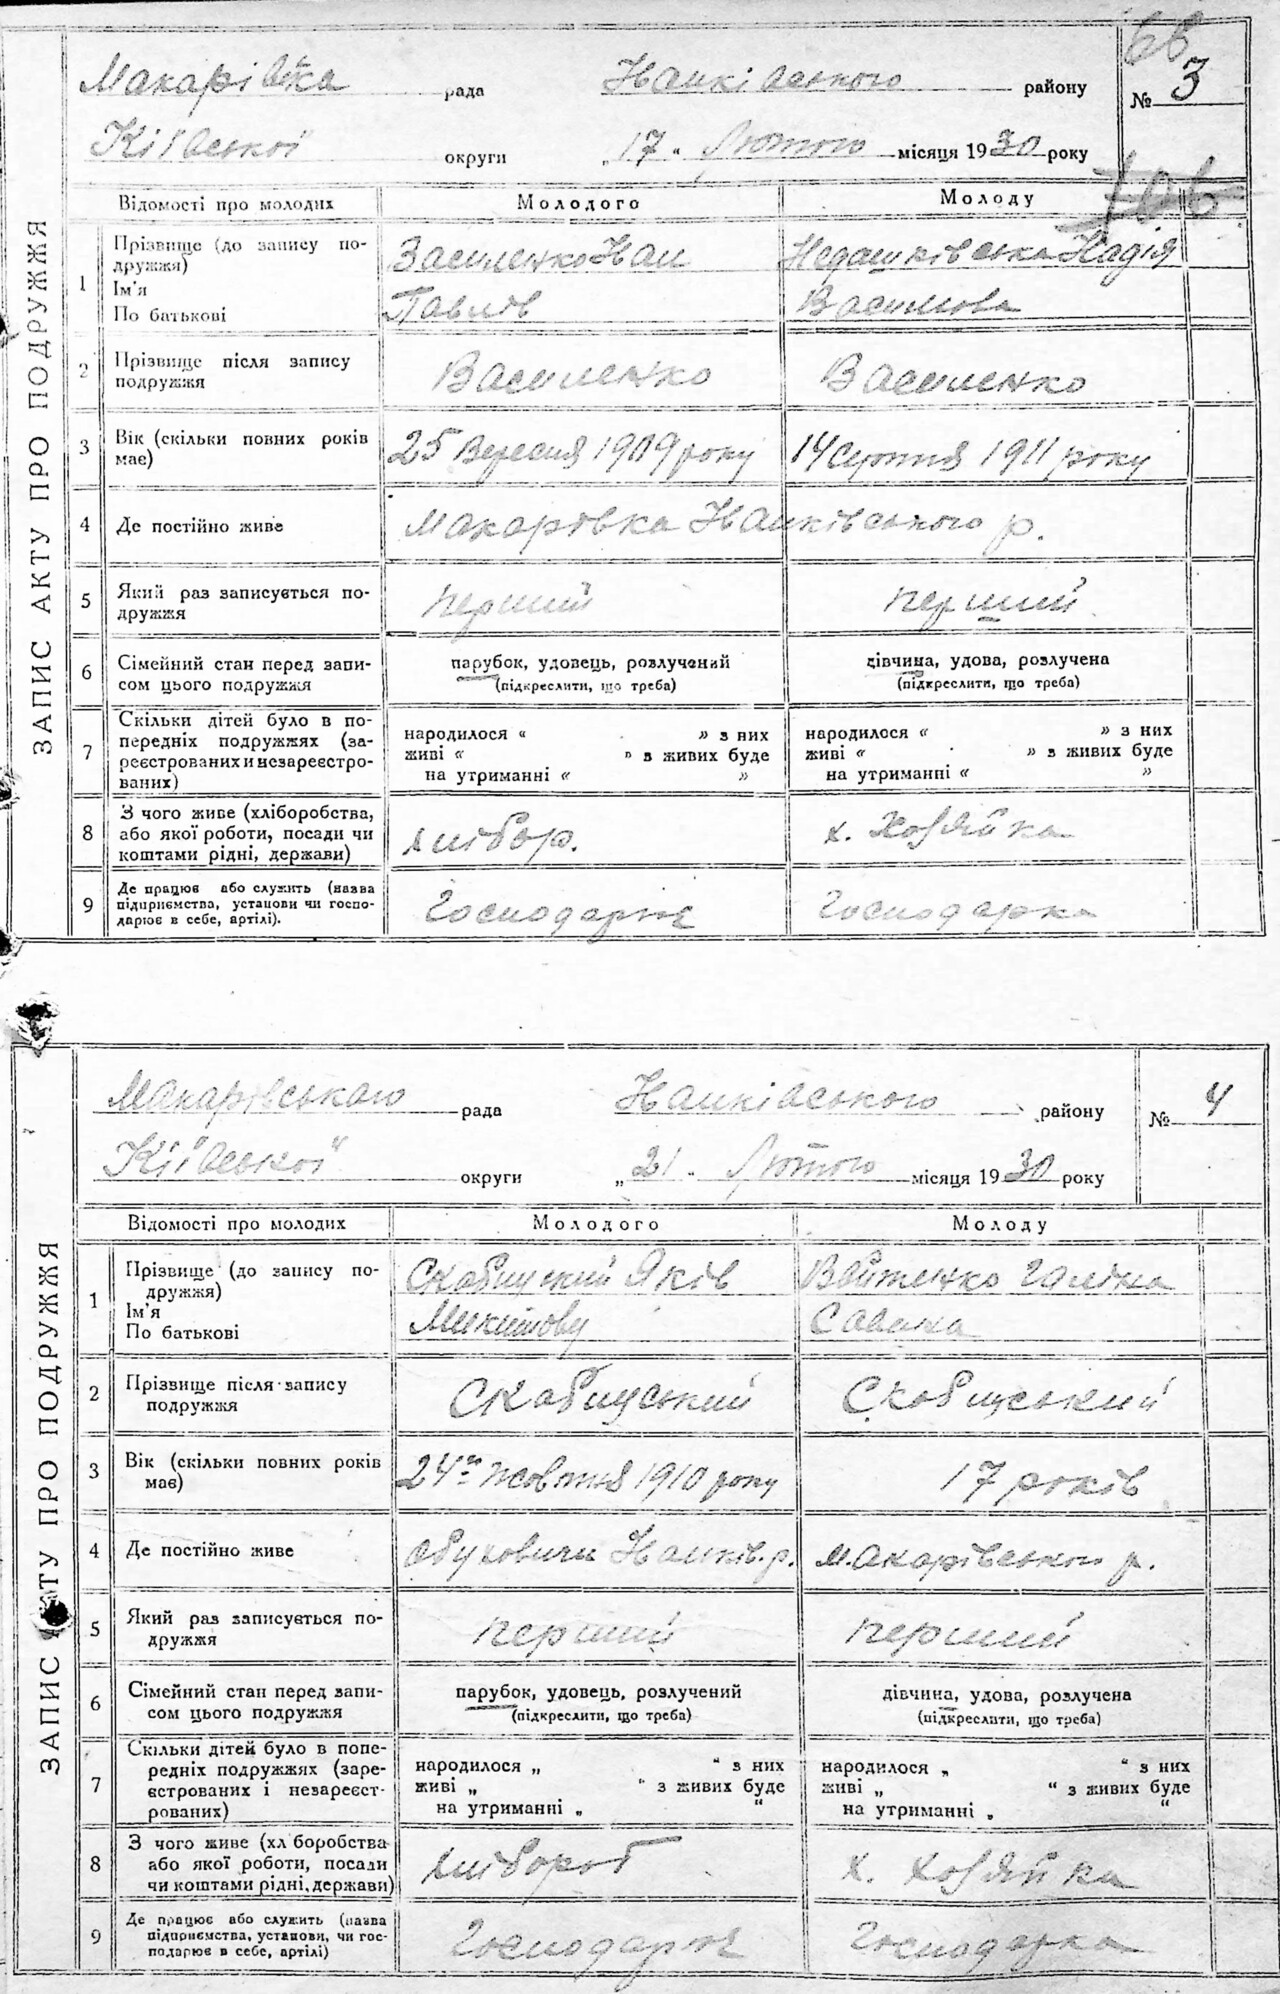 6в
Макарівка рада Іванківського району № 3
Київської округи „17" Лютого місяця 1930 року
10в
ЗАПИС АКТУ ПРО ПОДРУЖЖЯ
Відомості про молодих Молодого Молоду
1 Прізвище (до запису подружжя) Василенко Іван Недашківська Надія
Ім'я
По батькові Павлів Василіова
2 Прізвище після запису подружжя Василенко Василенко
3 Вік (скільки повних років має) 25 Вересня 1909 року 14 Серпня 1911 року
4 Де постійно живе Макарівка Іванківського р.
5 Який раз записується подружжя перший перший
6 Сімейний стан перед записом цього подружжя парубок, удовець, розлучений дівчина, удова, розлучена
(підкреслити, що треба) (підкреслити, що треба)
7 Скільки дітей було в попередніх подружжях (зареєстрованих и незареєстрованих) народилося « » з них народилося « » з них
живі « » з живих буде живі « » з живих буде
на утриманні « » на утриманні « »
8 З чого живе (хліборобства, або якої роботи, посади чи коштами рідні, держави) хлібор. х. Хозяйка
9 Де працює або служить (назва підприємства, установи чи господарює в себе, артілі). Господарює Господарка
Макарівського рада Іванківського району № 4
Київської округи „21" Лютого місяця 1930 року
ЗАПИС АКТУ ПРО ПОДРУЖЖЯ
Відомості про молодих Молодого Молоду
1 Прізвище (до запису подружжя) Яків Войтенко Галіна
Ім'я
По батькові Савина
2 Прізвище після запису подружжя
3 Вік (скільки повних років має) 24го жовтня 1910 року 17 років
4 Де постійно живе Обуховичи Іванків. р. Макарівського р.
5 Який раз записується подружжя перший перший
6 Сімейний стан перед записом цього подружжя парубок, удовець, розлучений дівчина, удова, розлучена
(підкреслити, що треба) (підкреслити, що треба)
7 Скільки дітей було в попередніх подружжях (зареєстрованих і незареєстрованих) народилося „ “ з них народилося „ “ з них
живі „ “ з живих буде живі „ “ з живих буде
на утриманні „ “ на утриманні „ “
8 З чого живе (хл боробства або якої роботи, посади чи коштами рідні, держави) хлібороб х. хозяйка
9 Де працює або служить (назва підприємства, установи, чи господарює в себе, артілі) Господарює Господарка